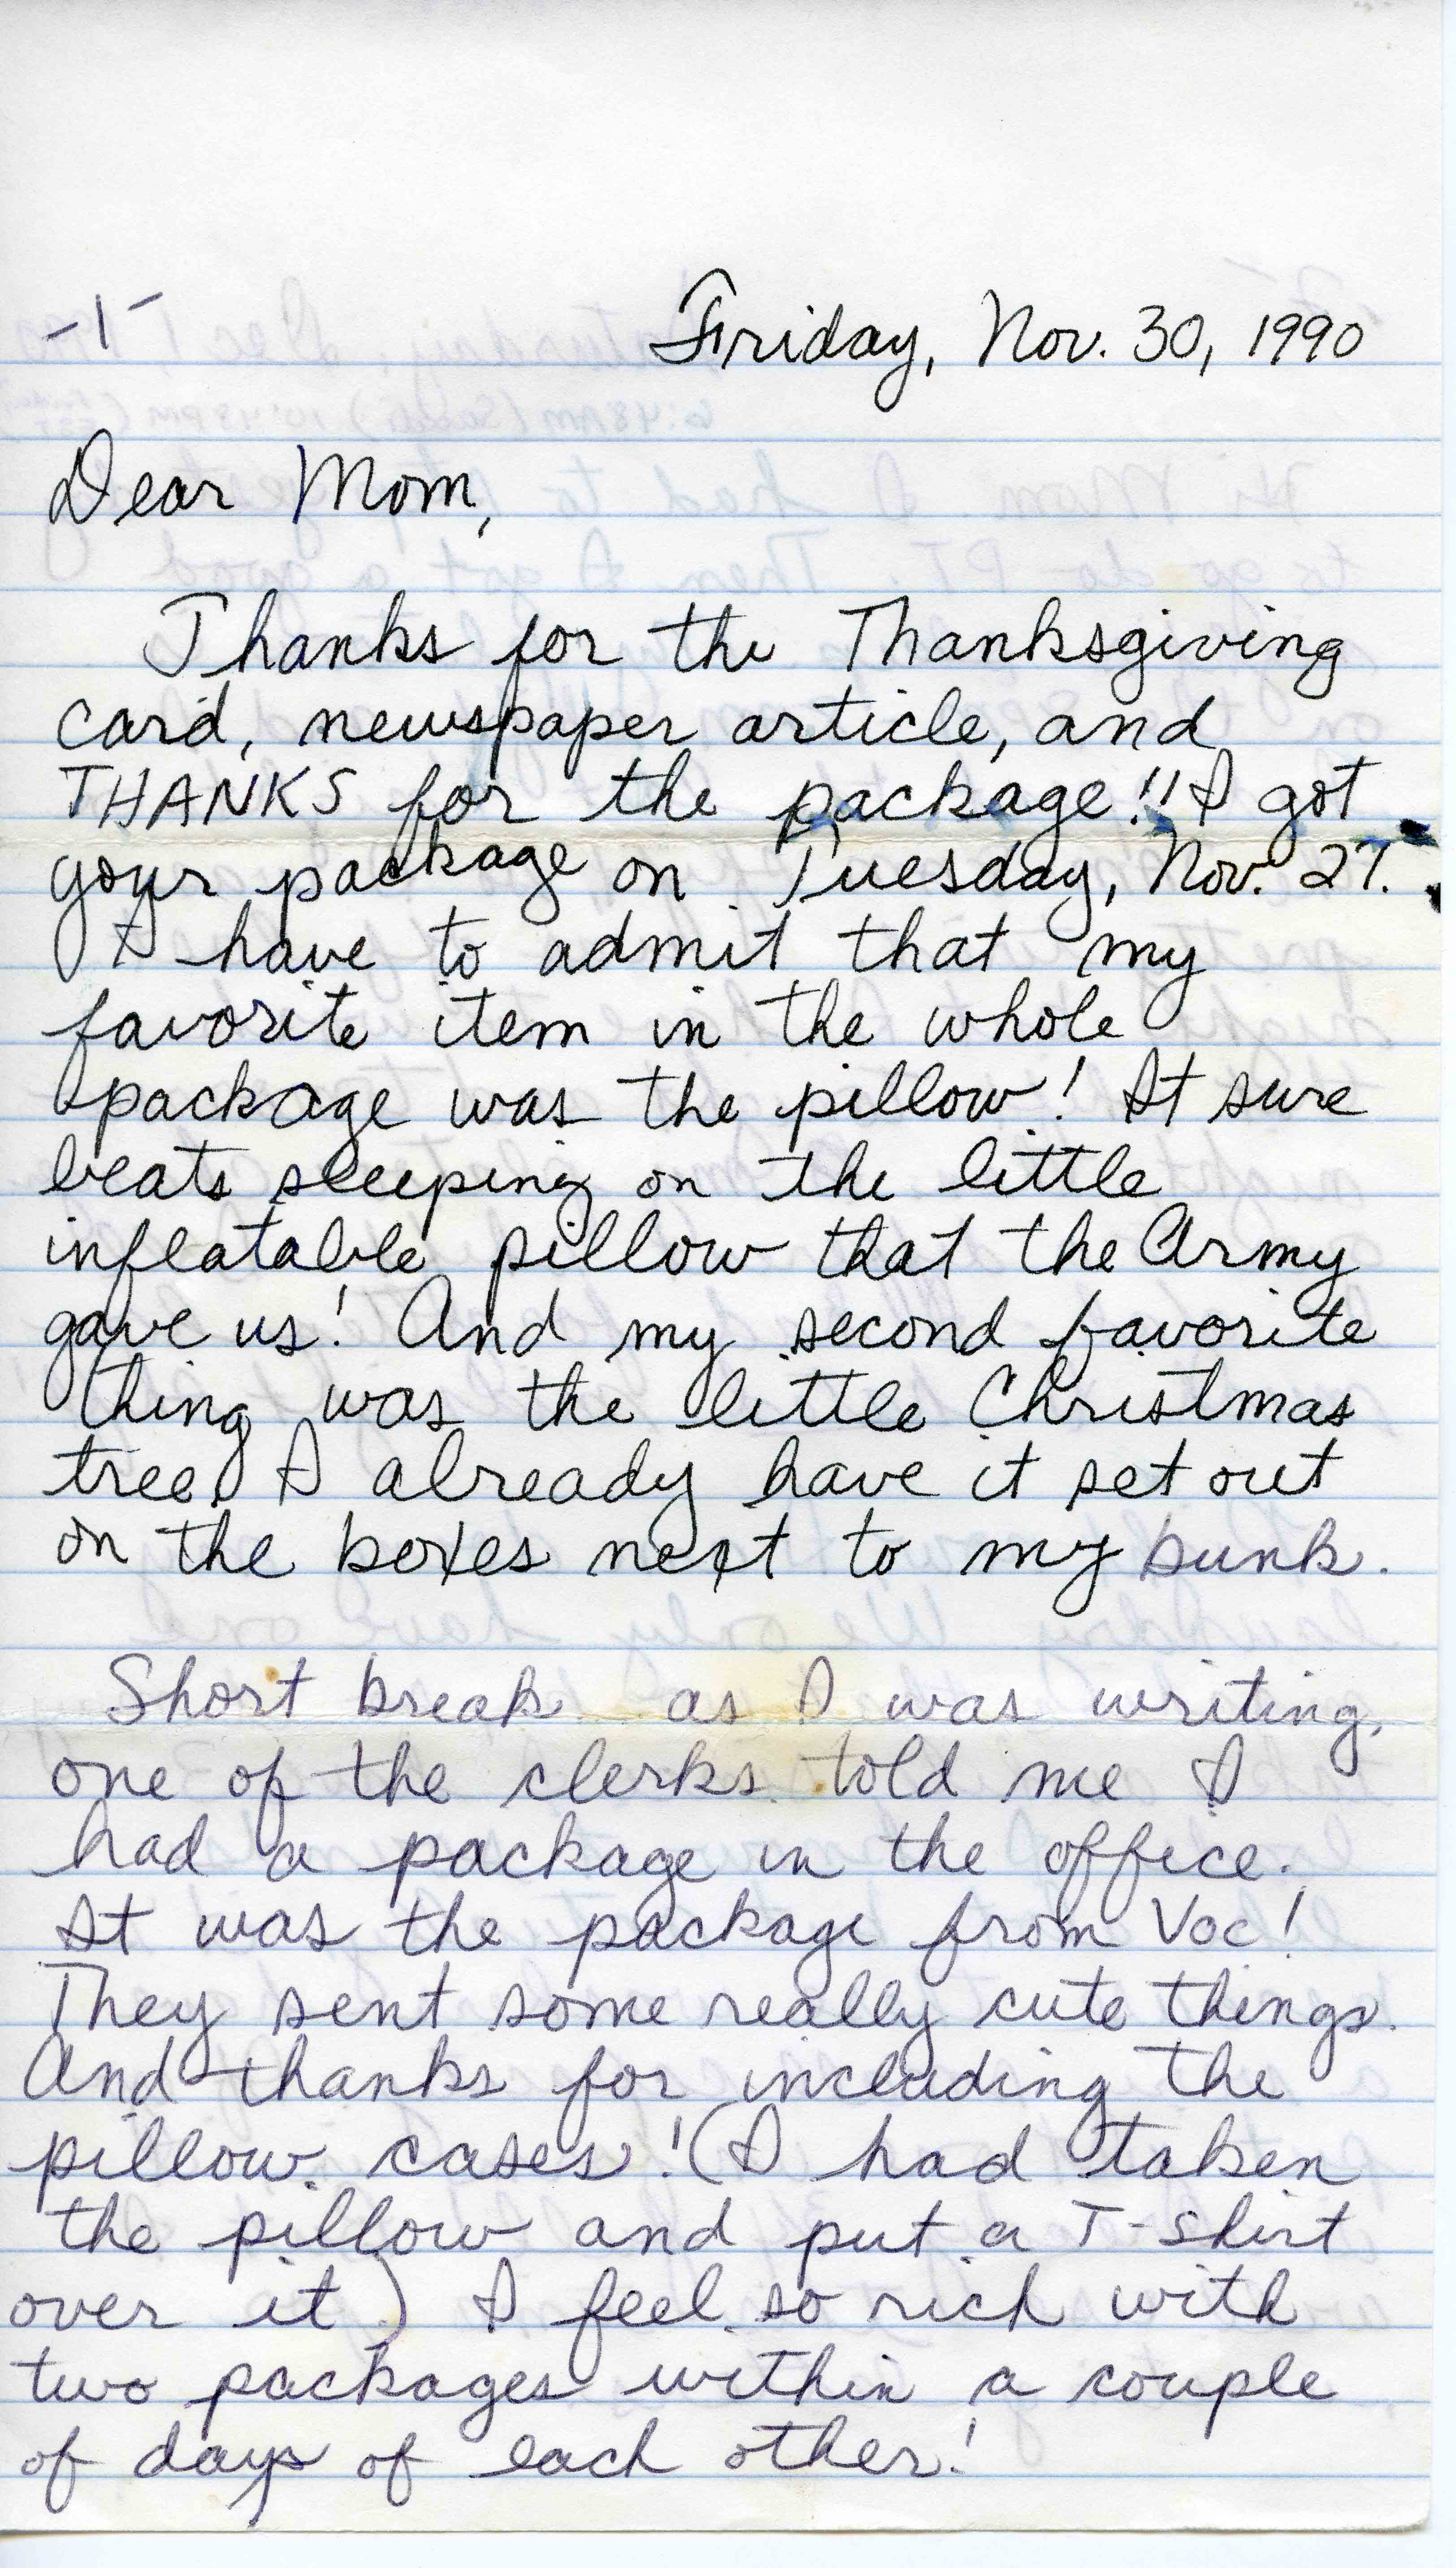 -1- Friday, Nov. 30, 1990
Dear Mom,
Thanks for the Thanksgiving
card, newspaper article, and
THANKS for the package!! I got
your package on Tuesday, Nov. 27.
I have to admit that my
favorite item in the whole
package was the pillow! It sure
beats sleeping on the little
inflatable pillow that the Army
gave us! And my second favorite
thing was the little Christmas
tree. I already have it set out
on the boxes next to my bunk.
Short break as I was writing,
one of the clerks told me I
had a package in the office.
It was the package from Voc!
They sent some really cute things.
And thanks for including the
pillow cases! (I had taken
the pillow and put a T-shirt
over it) I feel so rich with
two packages within a couple
of days of each other!